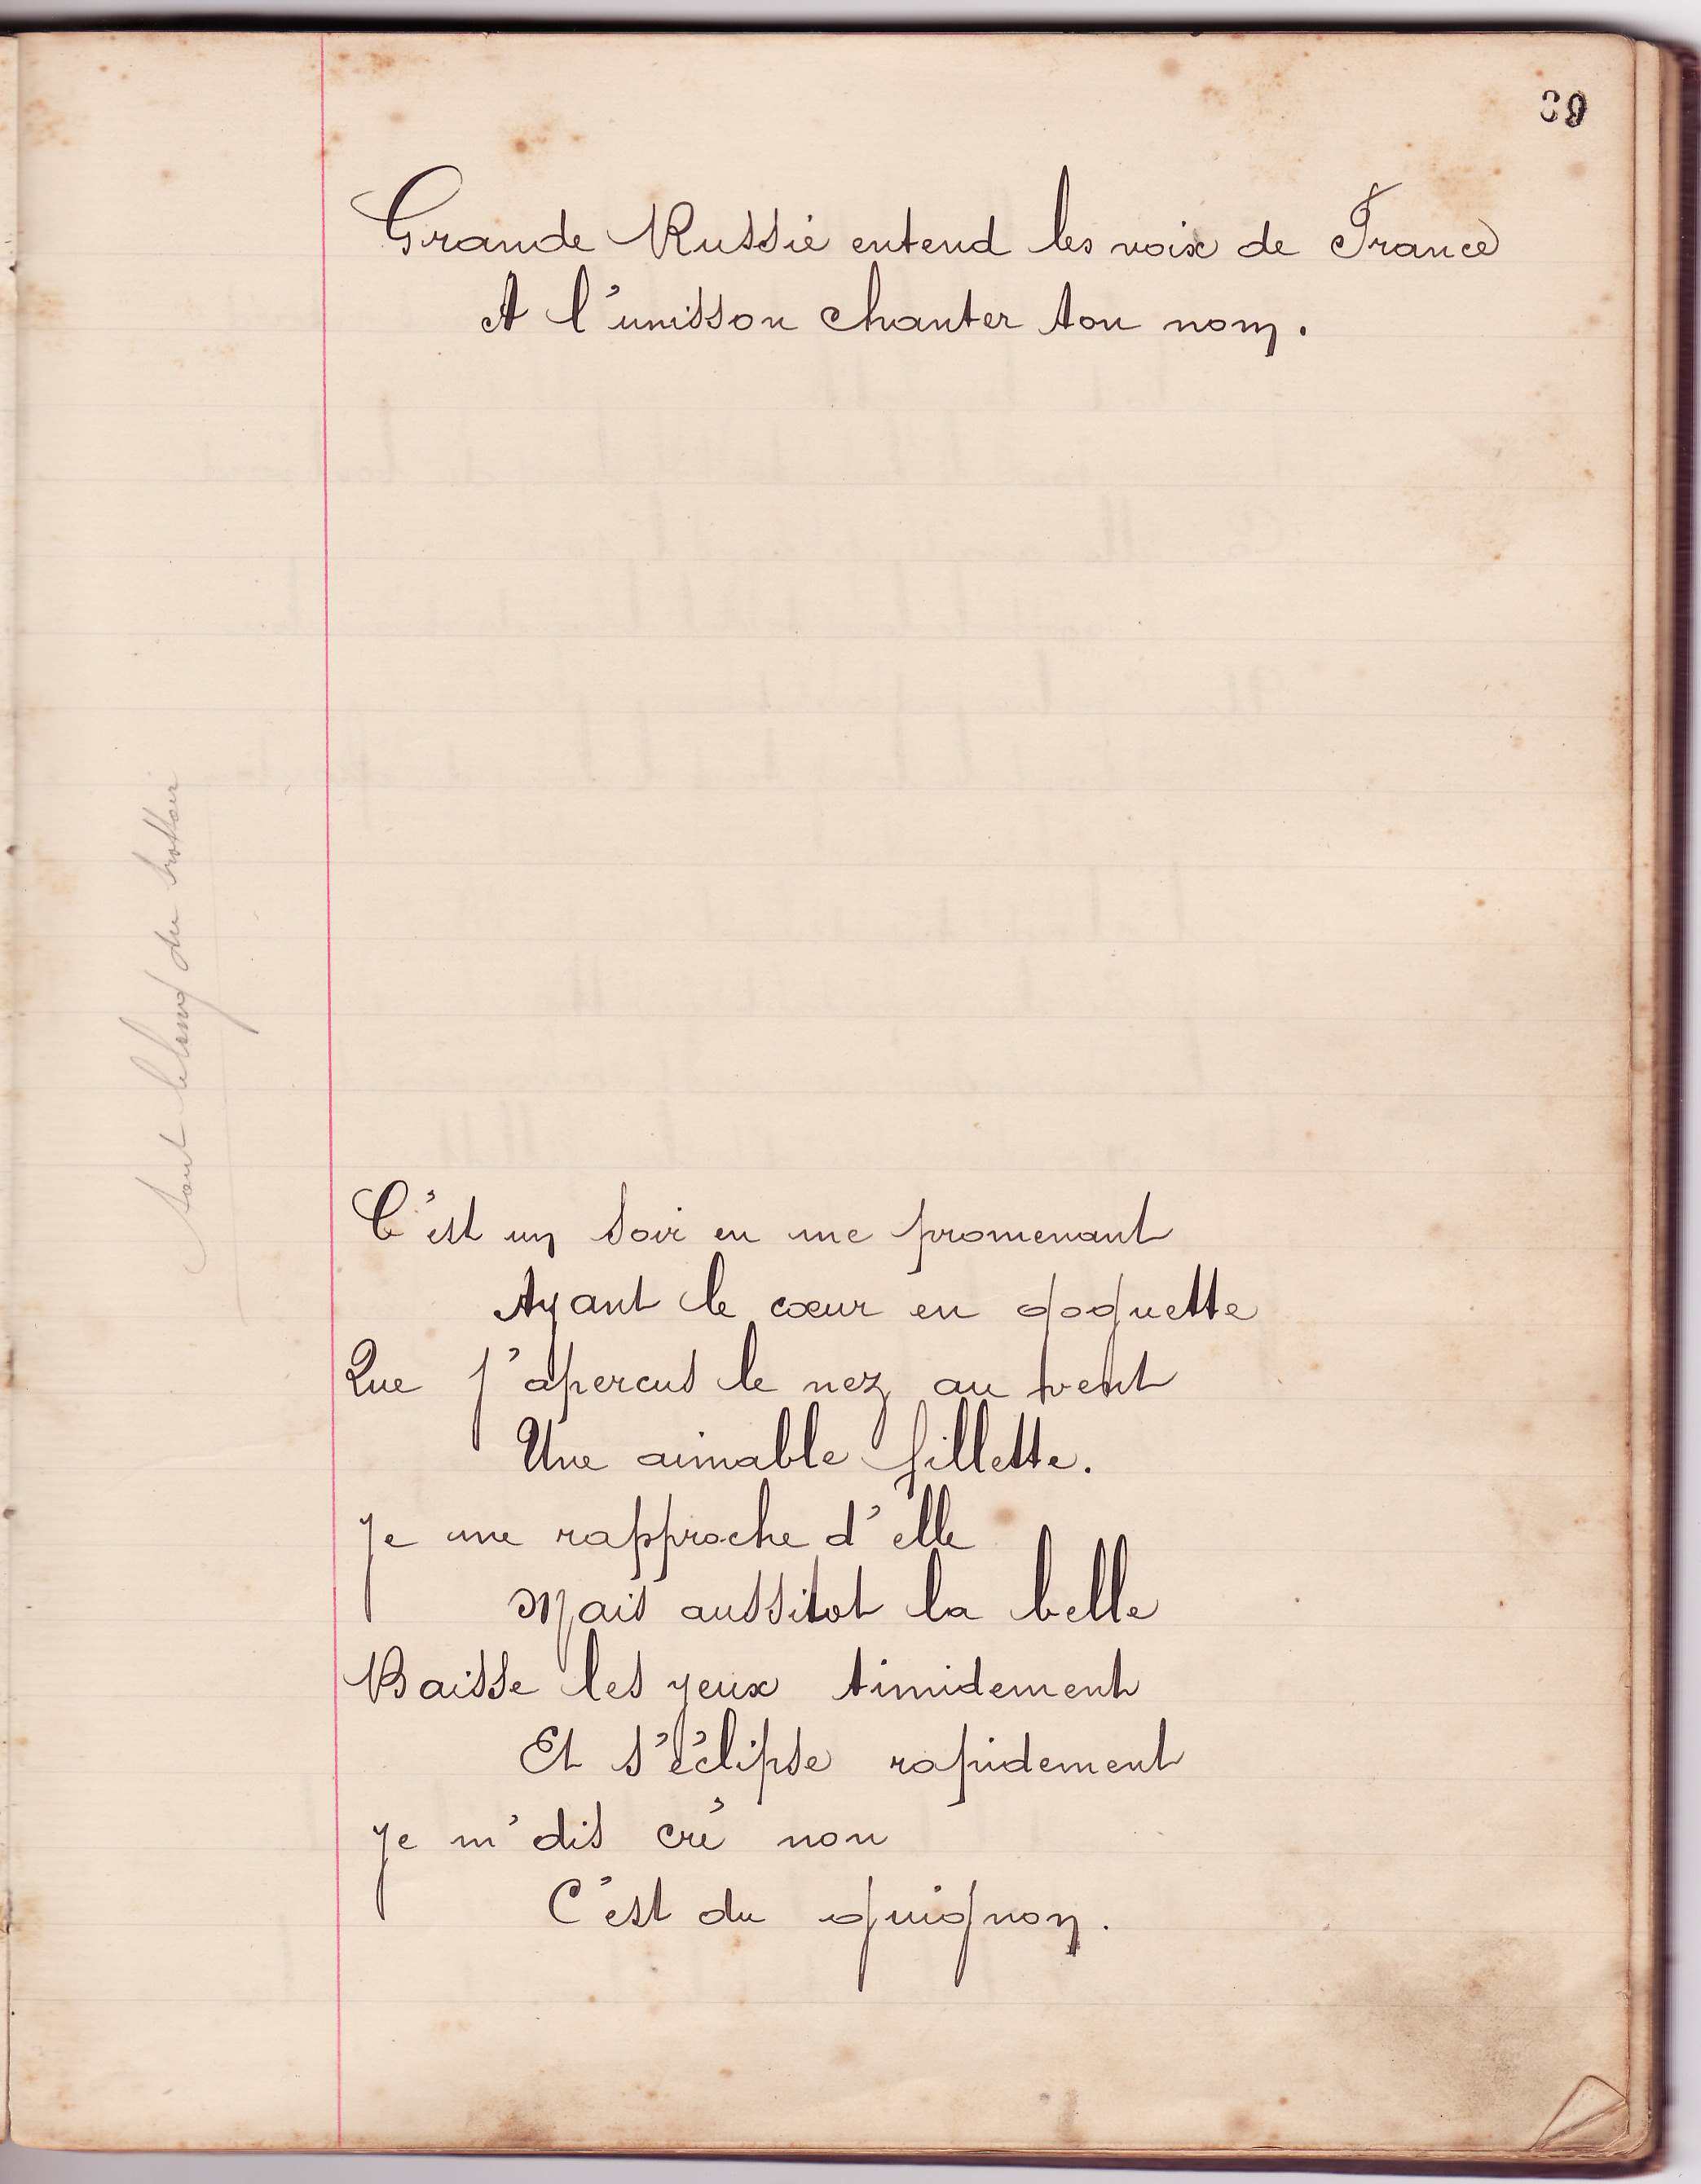 39
Grande Russie entend les voix de France
A l'unisson chanter ton nom.
tout le long du trottoir
C'est un soir en me promenant
Ayant le cœur en goguette
Que j'apercus le nez au vent
Une aimable fillette.
Je me rapproche d'elle
Mais aussitot la belle
Baisse les yeux timidement
Et s'éclipse rapidement
Je m'dis cré non
C'est du guignon.